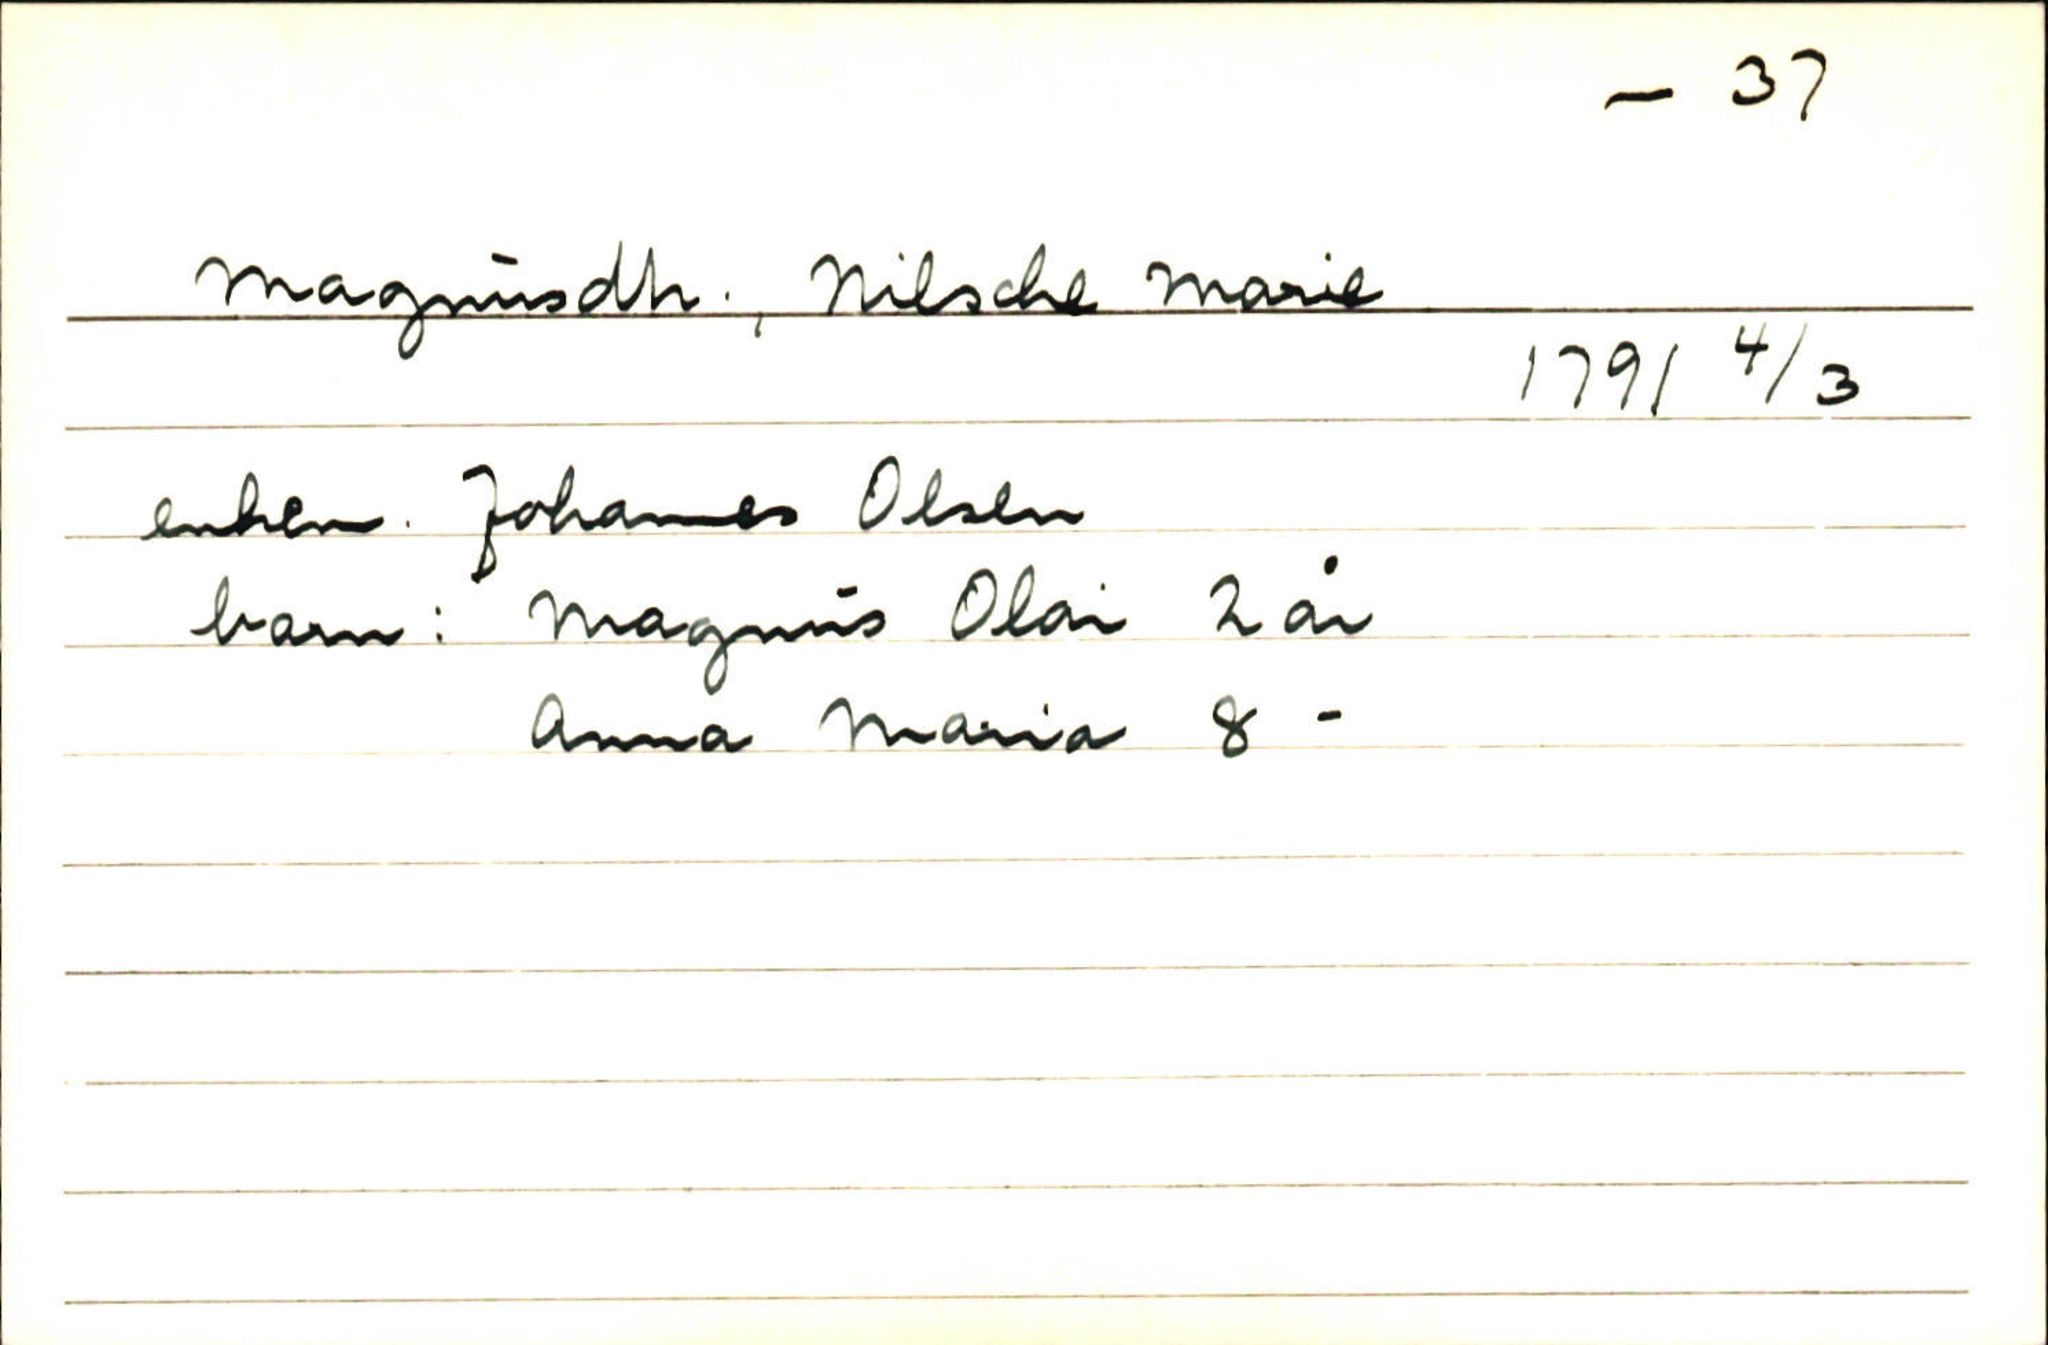 — 37
Magnusdtr., Nilsche Marie
1791 4/3
enkem. Johannes Olsen
barn: Magnus Olai 2 år
Anna Maria 8 -